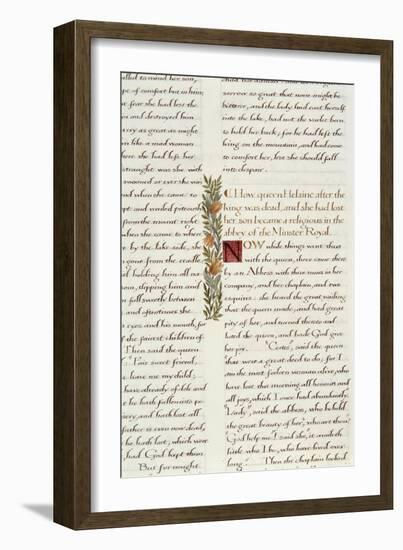 alled to mind her son,
pe of comfort but in him;
t fear she had lost the
n and destroyed him
rry as great as might
in like a mad woman
here she had left her
straight was she with
swooned or ever she was
n when she came to
ept and wailed
from the mount right
when she came to where
by the lake-side, she
gone from the cradle,
al holding him all na-
som, clipping him and
n full sweetly between
and aftertimes she
s eyes and his mouth, for
f the fairest children of
Then said the queen
"Fair sweet friend,
leave me my child;
have already of dole and
e he hath fallen into pe-
verty, and hath lost all
father is even now dead,
he hath lost, which were
had God kept them.
But for nought
sorrow so great that none might be
bitterer, and the lady had cast herself
into the lake, had not the varlet been
to hold her back; for he had left the
king on the mountain, and had come
to comfort her, lest she should fall
into despair.
How queen Helaine after the
king was dead, and she had lost
her son became a religious in the
abbey of the Minster Royal.
NOW while things went thus
with the queen, there came there
by an Abbess with three nuns in her
company, and her chaplain, and two
esquires: she heard the great wailing
that the queen made, and had great
pity of her, and turned thereto and
hard the queen, and bade God give
her joy. "Certes", said the queen
"that were a great deed to do; for I
am the most forlorn woman alive, who
have lost this morning all honour and
all joys, which I once had abundantly."
"Lady", said the abbess, who beheld
the great beauty of her, "who art thou?"
"God help me!" said she, "it
little who I be, who have lived over
long." Then the chaplain looked